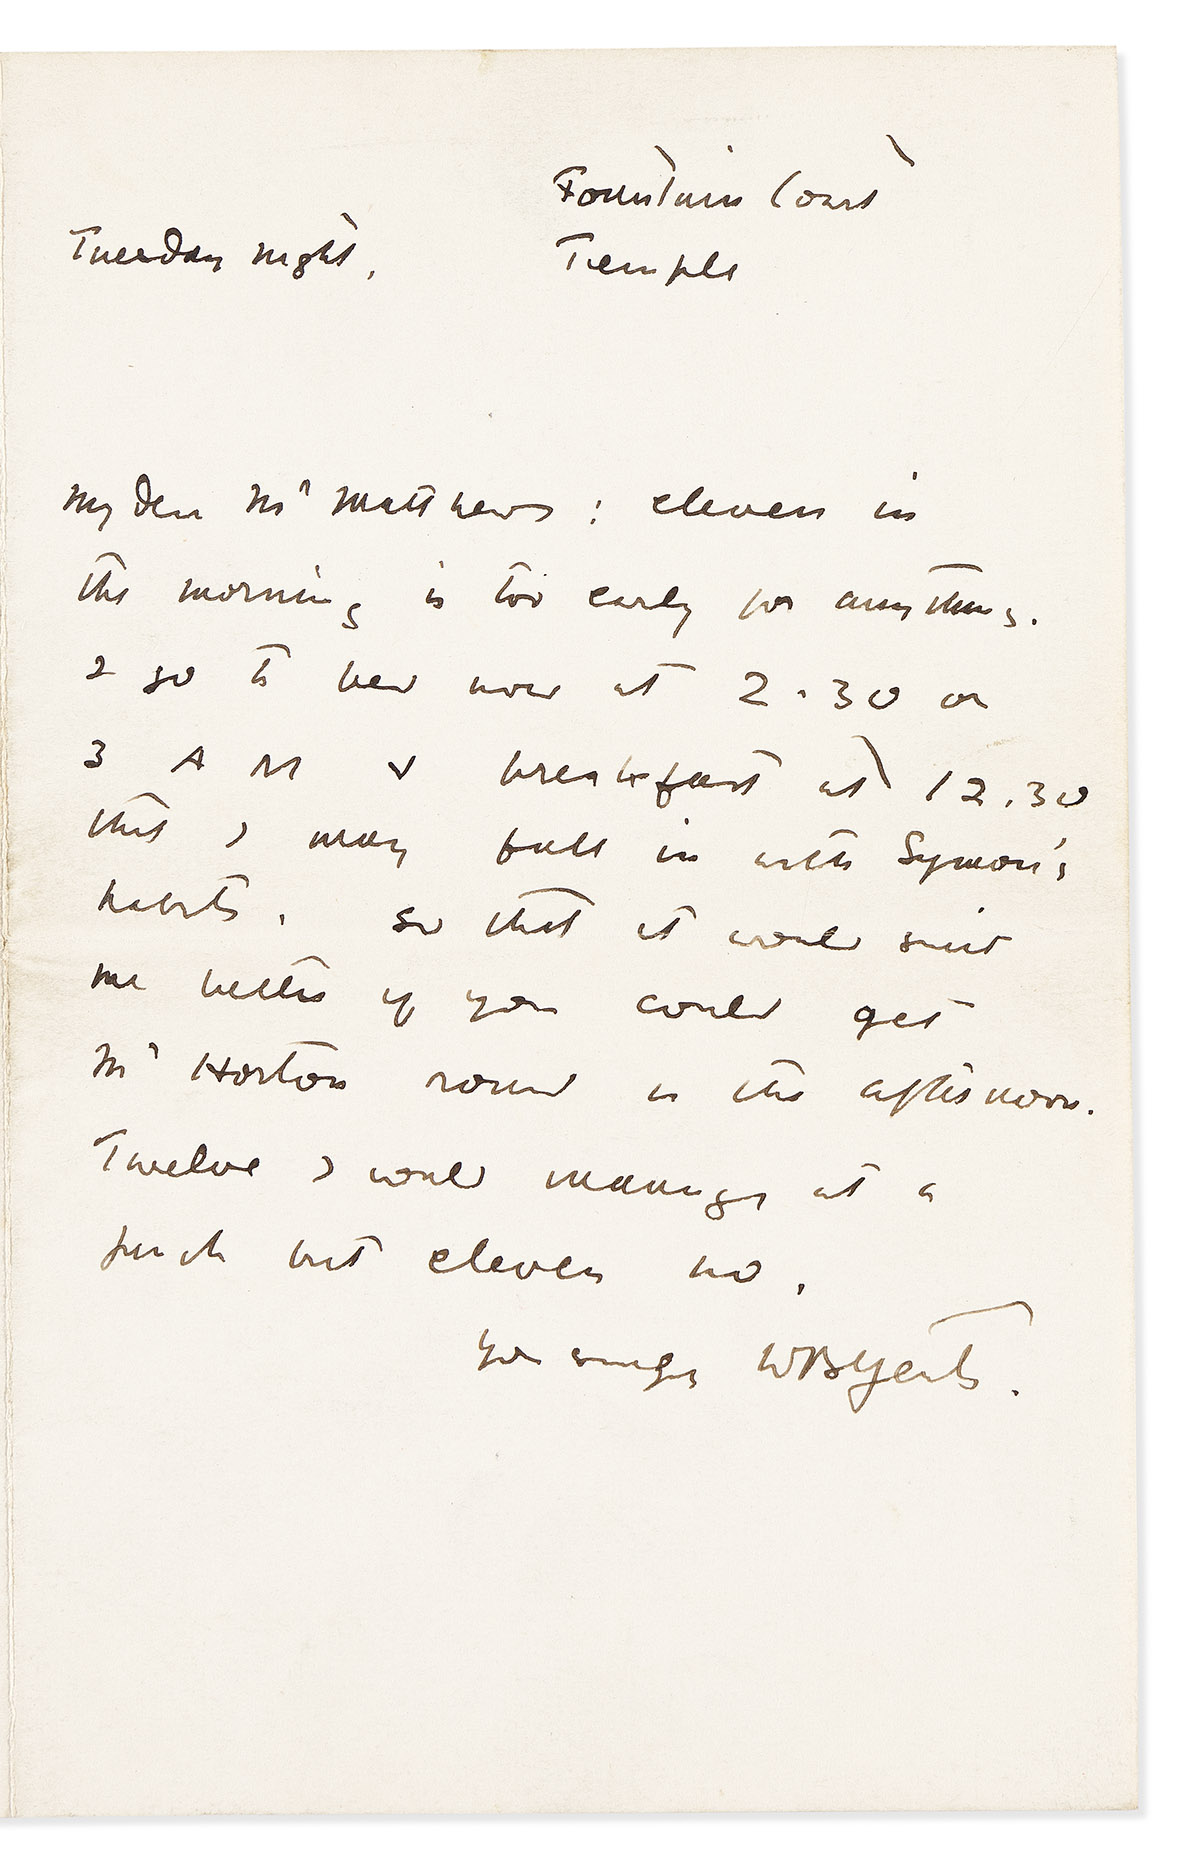 Fountain Court
Tuesday night,
Temple
My dear Mr Matthews : eleven in
the morning is too early for anything.
I go to bed now at 2.30 or
3 A M & breakfast at 12.30
that I may fall in with Symon's
habits. So that it would suit
me better if you could get
Mr Horton round in the afternoon.
Twelve I could manage at a
pinch but eleven no.
Yrs sincely WB Yeats.